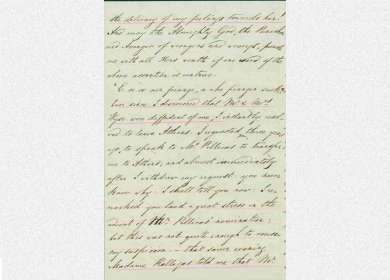 the delicacy of my feelings towards her!
And may the Almighty God, the Punisher
and Avenger of and , punish
me with all His wrath if one word of the
above assertion is untrue.
"E non mi piange, a che piange
Ever since I discovered that Mr & Mrs
Wyse were diffident of me, I instantly resol-
ved to leave Athens. I requested, three years
ago, to speak to Mr Pellicas to transfer
me to Athens, and almost immediately
after I withdrew my request: you never
knew why. I shall tell you now: I re-
marked you laid a great stress on the
advent of Mr. Pellicas' nomination:
but this was not quite enough to rouse
my suspicion - that same evening
Madame Rallijas told me that Mr